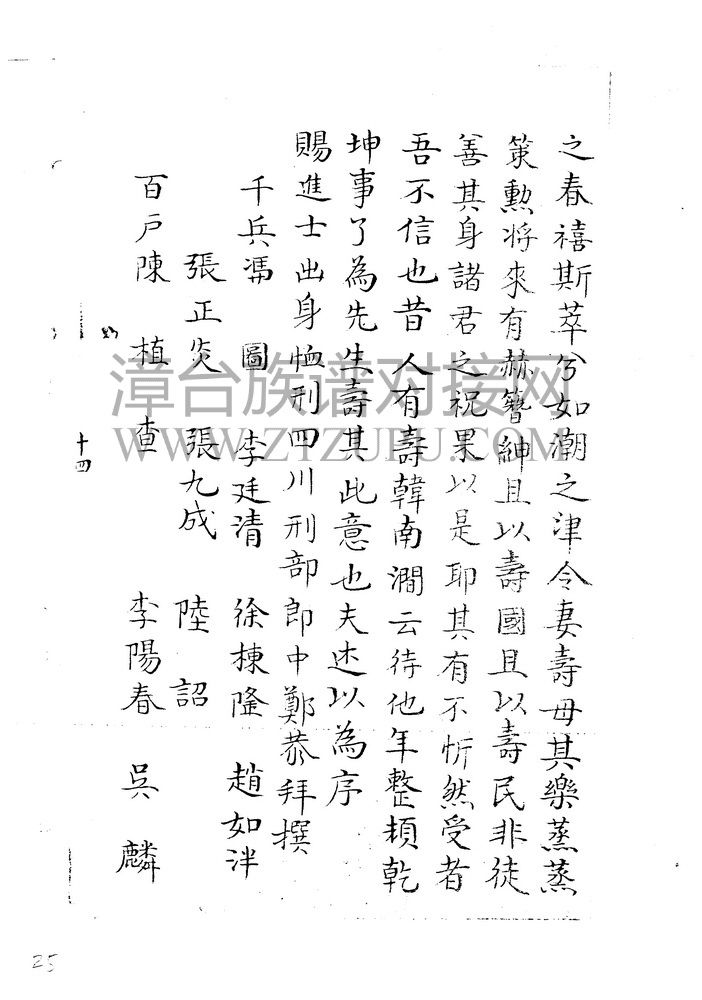 之春禧斯萃兮如潮之津令妻壽母其樂蒸蒸
策勳將來有赫簪紳且以壽國且以壽民非徒
善其身諸君之祝果以是耶其有不忻然受者
吾不信也昔人有壽韓南澗云待他年整頓乾
坤事了為先生壽其此意也夫述以為序
賜進士出身恤刑四川刑部郎中鄭恭拜撰
千兵馮 圖 李廷清 徐棟隆 趙如泮
張正炎 張九成 陸 詔
百户陳 植 查 李陽春 吳 麟
十四
漳台族谱对接网
WWW.ZTZUPU.COM
25